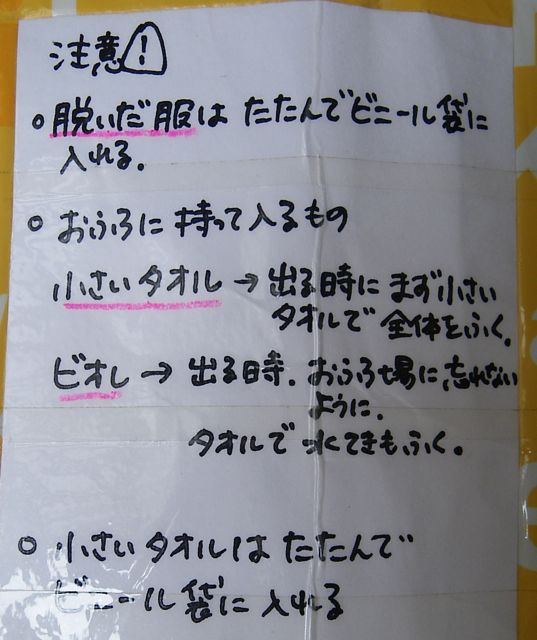 注意!
○脱いだ服は たたんでビニール袋に
入れる。
○おふろに持って入るもの
小さいタオル→出る時にまず小さい
タオルで全体をふく。
ビオレ→出る時、おふろ場に忘れない
ように。
タオルで水てきもふく。
○小さいタオルはたたんで
ビニール袋に入れる